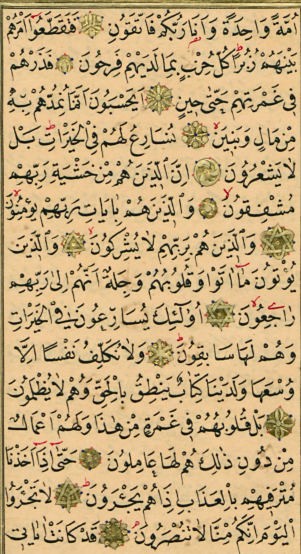 اُمَّةً وَاحِدَةً وَاَنَا۬ رَبُّكُمْ فَاتَّقُونِ فَتَقَطَّعُٓوا اَمْرَهُمْ
بَيْنَهُمْ زُبُرًا كُلُّ حِزْبٍ بِمَا لَدَيْهِمْ فَرِحُونَ فَذَرْهُمْ
فِي غَمْرَتِهِمْ حَتّٰى حِينٍ اَيَحْسَبُونَ اَنَّمَا نُمِدُّهُمْ بِهِ
مِنْ مَالٍ وَبَنِينَ نُسَارِعُ لَهُمْ فِي الْخَيْرَاتِ بَلْ
لَا يَشْعُرُونَ اِنَّ الَّذِينَ هُمْ مِنْ خَشْيَةِ رَبِّهِمْ
مُشْفِقُونَ وَالَّذِينَ هُمْ بِاٰيَاتِ رَبِّهِمْ يُؤْمِنُونَ
وَالَّذِينَ هُمْ بِرَبِّهِمْ لَا يُشْرِكُونَ وَالَّذِينَ
يُؤْتُونَ مَٓا اٰتَوْا وَقُلُوبُهُمْ وَجِلَةٌ اَنَّهُمْ اِلٰى رَبِّهِمْ
رَاجِعُونَ اُولٰٓئِكَ يُسَارِعُونَ فِي الْخَيْرَاتِ
وَهُمْ لَهَا سَابِقُونَ وَلَا نُكَلِّفُ نَفْسًا اِلَّا
وُسْعَهَا وَلَدَيْنَا كِتَابٌ يَنْطِقُ بِالْحَقِّ وَهُمْ لَا يُظْلَمُونَ
بَلْ قُلُوبُهُمْ فِي غَمْرَةٍ مِنْ هٰذَا وَلَهُمْ اَعْمَالٌ
مِنْ دُونِ ذٰلِكَ هُمْ لَهَا عَامِلُونَ حَتّٰٓى اِذَٓا اَخَذْنَا
مُتْرَفِيهِمْ بِالْعَذَابِ اِذَا هُمْ يَجْـَٔرُونَ لَا تَجْـَٔرُوا
الْيَوْمَ اِنَّكُمْ مِنَّا لَا تُنْصَرُونَ قَدْ كَانَتْ اٰيَاتِي